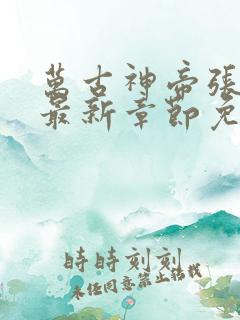 萬古神帝張
最新章節免
時時刻刻
未經同意禁止轉載